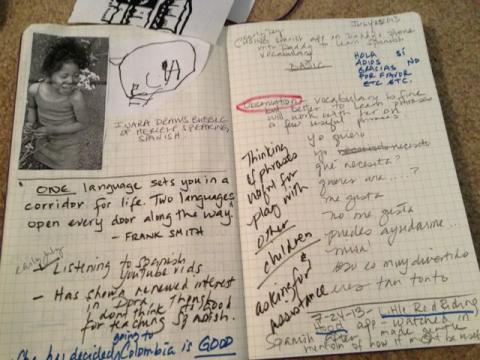 I VARA DRAWS BUBBLE
OF HERSELF SPEAKING
SPANISH.
"ONE language sets you in a
corridor for life. Two languages
open every door along the way."
- FRANK SMITH
early July
Listening to Spanish
YouTube vids
- Has shown renewed interest
in Dora
I don't think its good
for teaching Spanish.
She has decided going to Colombia is GOOD
JULY 2013
Spanish app on Daddy's phone
with Daddy to learn Spanish
vocabulary
BASIC
HOLA SÍ
ADIOS NO
GRACIAS
POR FAVOR
ETC ETC.
Observation: vocabulary is fine
but better to learn phrases
will work with her on
a few useful phrases
Thinking
of phrases
useful for
play with
other
children
asking for
assistance
yo quiero
yo necesito
qué necesita?
quieres ....?
me gusta
no me gusta
puedes ayudarme...
mira!
eso es muy divertido
eres tan tonto
7-24-13 - Little Red Riding
Hood app - watched in
Spanish after made gentle
mention of how it might be useful